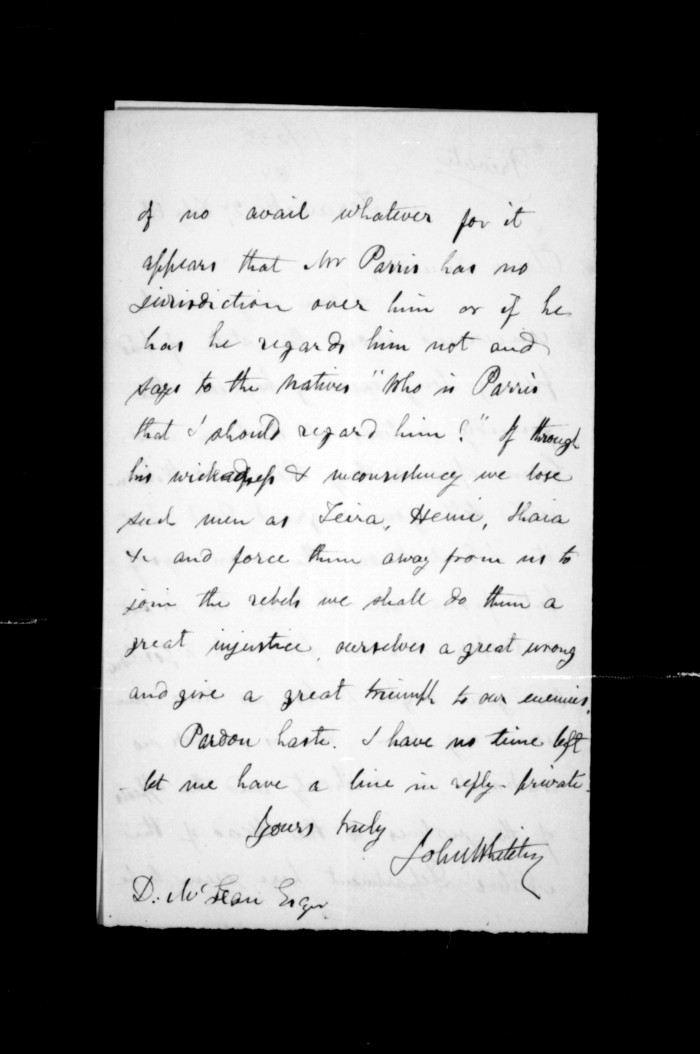 of no avail whatever for it
appears that Mr Parris has no
jurisdiction over him or if he
has he regards him not and
says to the natives "Who is Parris
that I should regard him?" If through
his wickedness & inconsistency we lose
such men as Teira, Hemi, Raia
&c and force them away from us to
join the rebels we shall do them a
great injustice, ourselves a great wrong
and give a great triumph to our enemies.
Pardon haste. I have no time left
let me have a line in reply - private.
Yours truly
John Whiteley
D. McLean Esqr